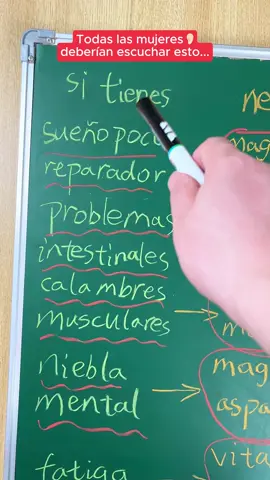 Todas las mujeres👂
deberían escuchar esto...
si tienes
sueño poco
reparador
problemas
intestinales
calambres
musculares
niebla
mental
fatiga
ne
mag
mag
aspa
vita